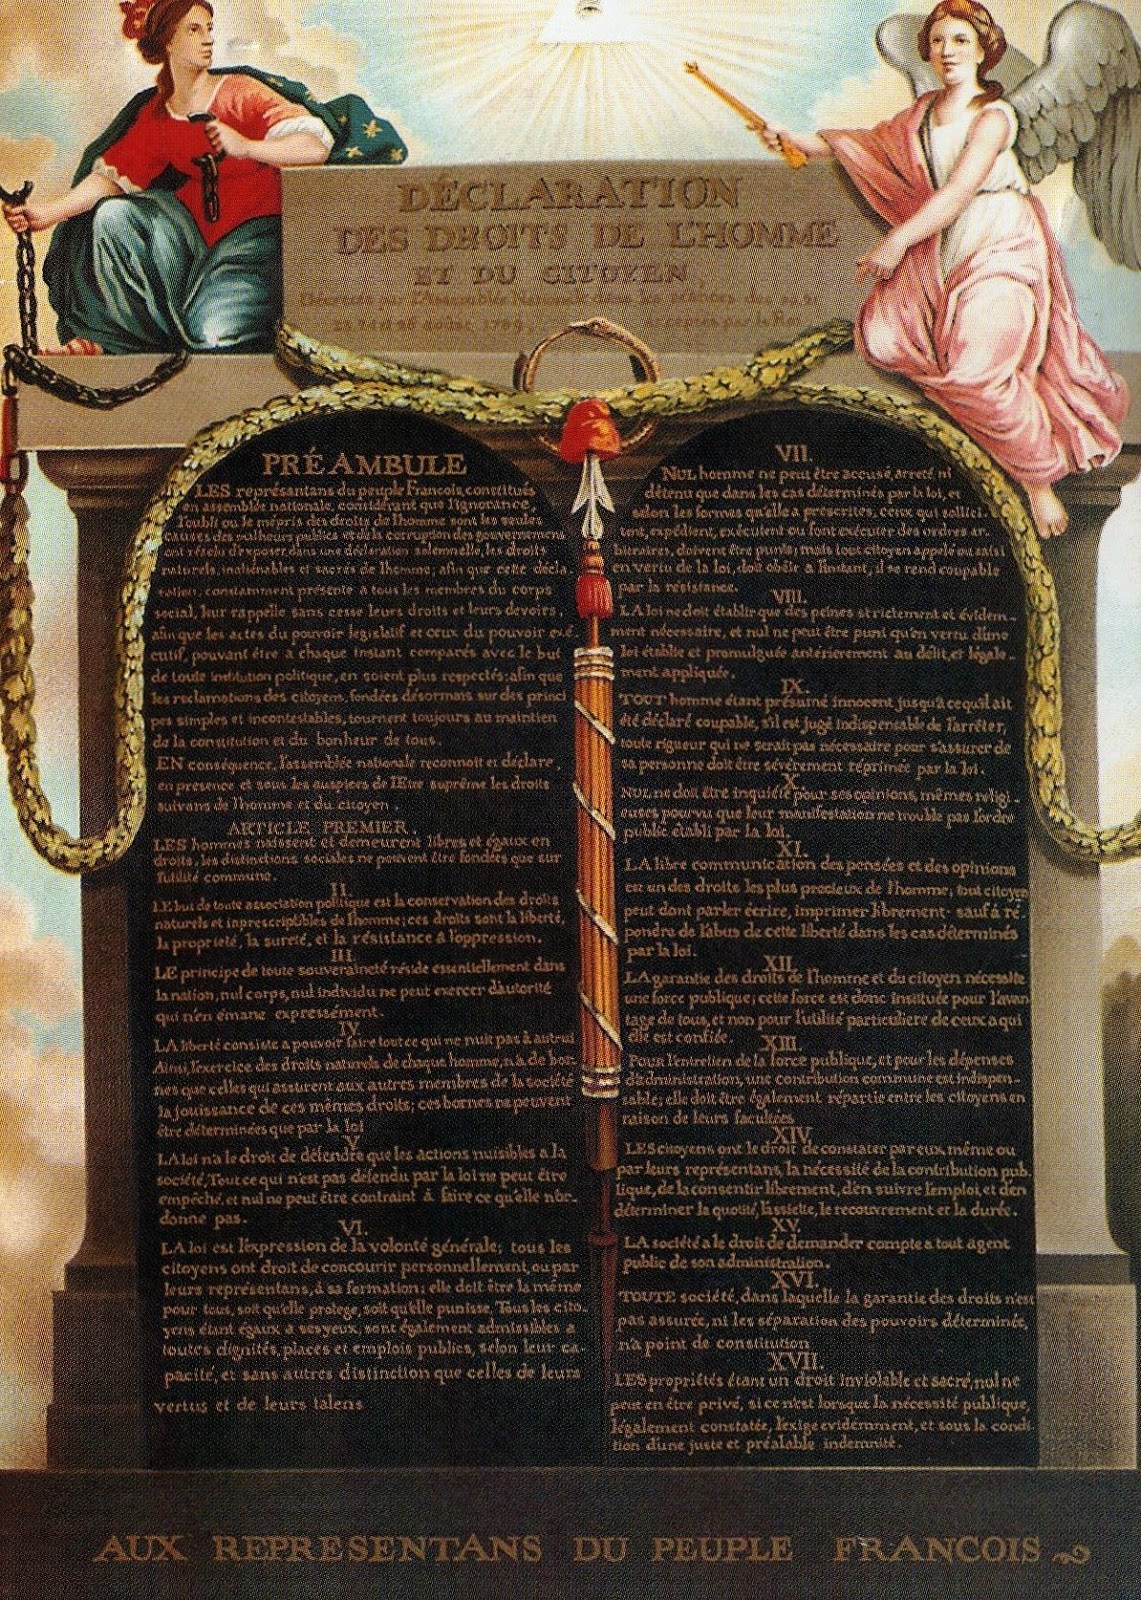 DÉCLARATION
DES DROITS DE L'HOMME
ET DU CITOYEN,
Décretés par l'Assemblée Nationale dans les séances des 20, 21
23, 24 et 26 août, 1789, acceptés par le Roi
PRÉAMBULE
LES représantans du peuple François, constitués
en assemblée nationale, considérant que l'ignorance,
l'oubli ou le mépris des droits de l'homme sont les seules
causes des malheurs publics et de la corruption des gouvernemens
ont résolu d'exposer, dans une déclaration solemnelle, les droits
naturels, inaliénables et sacrés de l'homme; afin que cette décla-
ration, constamment présente à tous les membres du corps
social, leur rappelle sans cesse leurs droits et leurs devoirs,
afin que les actes du pouvoir législatif et ceux du pouvoir exé-
cutif, pouvant être à chaque instant comparés avec le but
de toute institution politique, en soient plus respectés; afin que
les reclamations des citoyens, fondées désormais sur des princi
pes simples et incontestables, tournent toujours au maintien
de la constitution et du bonheur de tous.
EN conséquence, l'assemblée nationale reconnoit et déclare,
en presence et sous les auspices de l'Etre suprême les droits
suivans de l'homme et du citoyen.
ARTICLE PREMIER.
LES hommes naissent et demeurent libres et égaux en
droits, les distinctions sociales ne peuvent être fondées que sur
l'utilité commune.
II.
LE but de toute association politique est la conservation des droits
naturels et inprescriptibles de l'homme; ces droits sont la liberté,
la propriété, la sureté, et la résistance à l'oppression.
III.
LE principe de toute souveraineté réside essentiellement dans
la nation, nul corps, nul individu ne peut exercer d'autorité
qui n'en émane expressément.
IV.
LA liberté consiste a pouvoir faire tout ce qui ne nuit pas à autrui
Ainsi, l'exercice des droits naturels de chaque homme, n'a de bor-
nes que celles qui assurent aux autres membres de la société
la jouissance de ces mêmes droits; ces bornes ne peuvent
être déterminées que par la loi
V.
LA loi n'a le droit de défendre que les actions nuisibles a la
société, Tout ce qui n'est pas défendu par la loi ne peut être
empêché, et nul ne peut être contraint à faire ce qu'elle n'or-
donne pas.
VI.
LA loi est l'expression de la volonté générale; tous les
citoyens ont droit de concourir personnellement, ou par
leurs représentans, à sa formation; elle doit être la même
pour tous, soit qu'elle protege, soit qu'elle punisse. Tous les cito-
yens étant égaux a ses yeux, sont également admissibles a
toutes dignités, places et emplois publics, selon leur ca-
pacité, et sans autres distinction que celles de leurs
vertus et de leurs talens
VII.
NUL homme ne peut être accusé, arreté ni
détenu que dans les cas déterminés par la loi, et
selon les formes qu'elle a prescrites, ceux qui sollici-
tent, expédient, exécutent ou font exécuter des ordres ar-
bitraires, doivent être punis; mais tout citoyen appelé ou saisi
en vertu de la loi, doit obéir a l'instant, il se rend coupable
par la résistance.
VIII.
LA loi ne doit établir que des peines strictement et évidem-
ment nécessaire, et nul ne peut être puni qu'en vertu d'une
loi établie et promulguée antérierement au délit, et légale-
ment appliquée.
IX.
TOUT homme étant présumé innocent jusqu'a ce qu'il ait
été déclaré coupable, s'il est jugé indispensable de l'arrêter,
toute rigueur qui ne serait pas nécessaire pour s'assurer de
sa personne doit être sévèrement réprimée par la loi.
X.
NUL ne doit être inquiété pour ses opinions, mêmes religi-
euses pourvu que leur manifestation ne trouble pas l'ordre
public établi par la loi.
XI.
LA libre communication des pensées et des opinions
est un des droits les plus precieux de l'homme; tout citoyen
peut dont parler écrire, imprimer librement- sauf à ré-
pondre de l'abus de cette liberté dans les cas déterminés
par la loi.
XII.
LA garantie des droits de l'homme et du citoyen nécessite
une force publique; cette force est donc instituée pour l'avan
tage de tous, et non pour l'utilité particuliere de ceux a qui
elle est confiée.
XIII.
POUR l'entretien de la force publique, et pour les dépenses
d'administration, une contribution commune est indispen-
sable; elle doit être également répartie entre les citoyens en
raison de leurs facultées
XIV.
LES citoyens ont le droit de constater par eux même ou
par leurs représentans, la nécessité de la contribution pub-
lique, de la consentir librement, d'en suivre l'emploi, et d'en
déterminer la quotité, l'assiette, le recouvrement et la durée.
XV.
LA société a le droit de demander compte a tout agent
public de son administration.
XVI.
TOUTE société, dans laquelle la garantie des droits n'est
pas assurée, ni les séparation des pouvoirs déterminée,
n'a point de constitution
XVII.
LES propriétés étant un droit inviolable et sacré, nul ne
peut en être privé, si ce n'est lorsque la nécessité publique,
légalement constatée, l'exige evidemment, et sous la condi
tion d'une juste et préalable indemnité.
AUX REPRESENTANS DU PEUPLE FRANCOIS